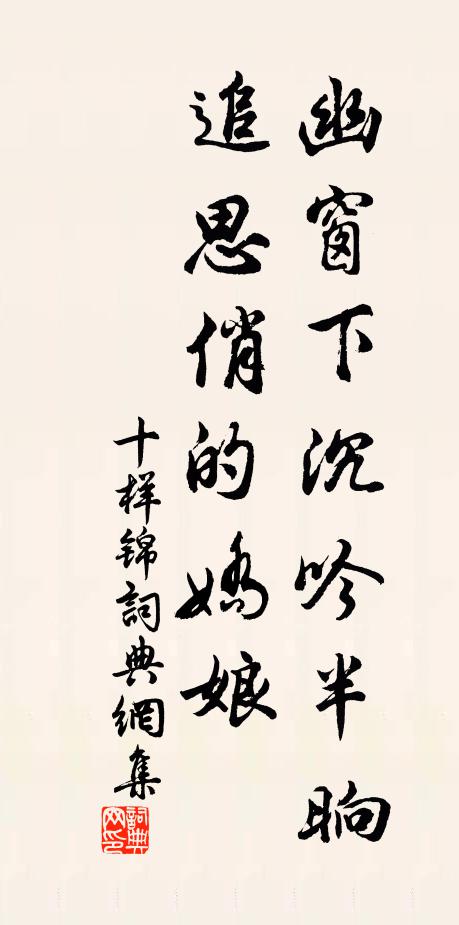 幽窗下沉吟半晌
追思俏的嬌娘
十样锦詞典網集
詞典
网印